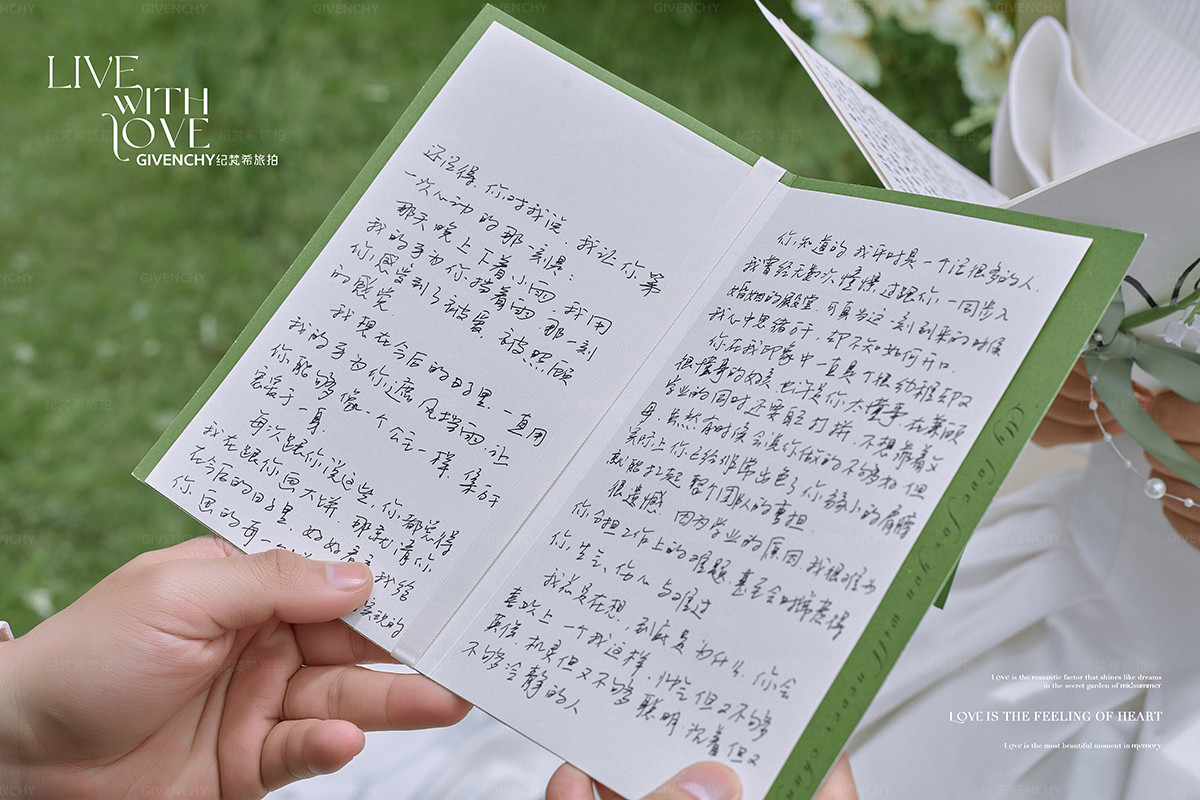 LIVE
WITH
LOVE
GIVENCHY纪梵希旅拍
还记得,你对我说,我让你第
一次心动的那一刻是:
那天晚上下着小雨,我用
我的手为你挡着雨,那一刻
你感觉到了被爱,被照顾
的感觉.
我想在今后的日子里,一直用
我的手为你遮风挡雨,让
你能够像一个公主一样,集万
宠爱于一身.
每次跟你说这些,你都觉得
我在跟你画大饼,那就请你
在今后的日子里好好
你画的每一
我给
的
你知道的,我平时是一个话很多的人.
我曾经无数次憧憬过跟你一同步入
婚姻的殿堂,可真当这一刻到来的时候
我心中思绪万千,却不知如何开口.
你在我印象中一直是个很幼稚却又
很懂事的女孩,也许是你太懂事,在兼顾
学业的同时还要努力打拼,不想靠着父
母,虽然有时候会说你做的不够好,但
实际上你已经非常出色了,你弱小的肩膀
就能扛起整个团队的重担.
很遗憾,因为学业的原因,我很难为
你分担工作上的难题,甚至会时常惹得
你生气、伤心与难过
我总是在想,到底是为什么,你会
喜欢上一个我这样,帅气但又不够
自信,机灵但又不够聪明,沉着但又
不够冷静的人
My love for you will never chan
Love is the romantic factor that shines like dreams
in the secret garden of midsummer
LOVE IS THE FEELING OF HEART
Love is the most beautiful moment in memory